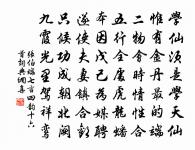 學仙須是學天仙
惟有金丹最的端
二物會時情性合
五行全處虎龍蟠
本因戊己為媒娉
遂使夫妻鎮合歡
只候功成朝北闕
九霞光裏駕祥鸞
張伯端七言四韻十六
首詞典網集